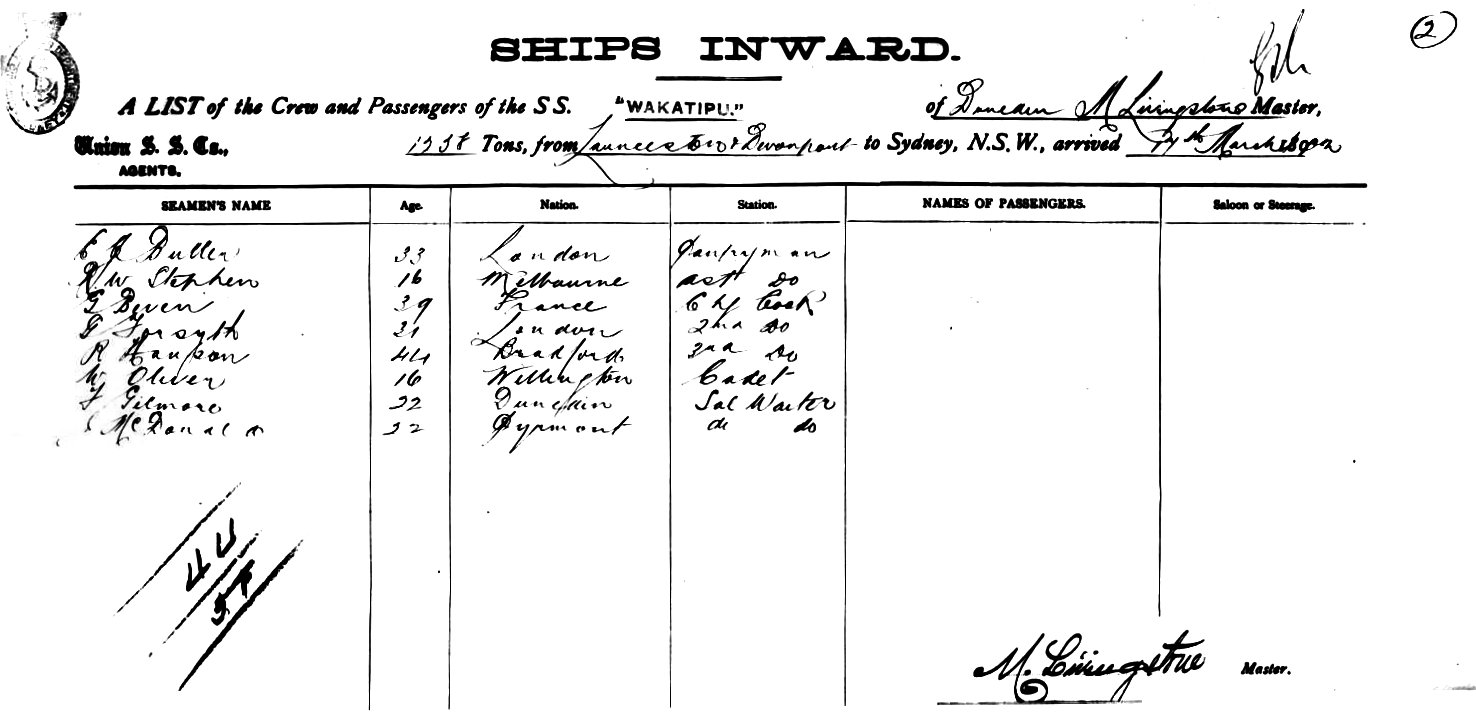 2
SHIPS INWARD.
A LIST of the Crew and Passengers of the S S. "WAKATIPU." of Dunedin M Livingstone Master,
Union S. S. Co., 1258 Tons, from Launceston & Devonport to Sydney, N.S.W., arrived March 1902
AGENTS.
SEAMEN'S NAME Age. Nation. Station. NAMES OF PASSENGERS. Saloon or Steerage.
33 London Pantryman
W Stephen 16 Melbourne Ast Do
G 39 France Chf Cook
G Forsyth 31 London 2nd Do
R 44 Bradford 3rd Do
W Oliver 16 Wellington Cadet
Gilmore 22 Dunedin Sal Waiter
McDonald 22 Pyrmont do do
M. Livingstone Master.